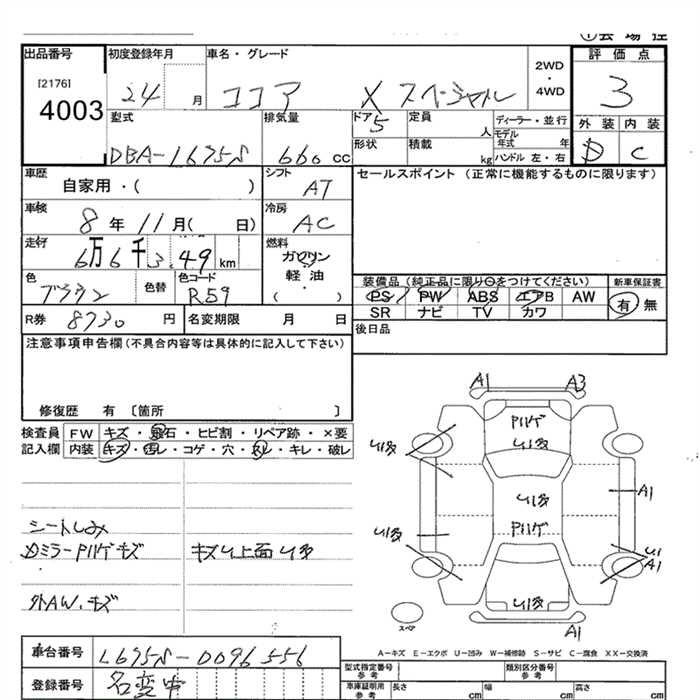 出品番号
[2176]
4003
初度登録年月
24 月
車名・グレード
ココア X スペシャル
2WD
・
4WD
評価点
3
外装 内装
D C
型式
DBA-L675S
排気量
660 cc
ドア
5
形状
定員
人
積載
kg
ディーラー・並行
モデル
年式 年
ハンドル 左・右
車歴
自家用・( )
シフト
AT
セールスポイント (正常に機能するものに限ります)
車検
8年 11月( 日)
冷房
AC
走行
6万6千3.49 km
燃料
ガソリン
軽・油
( )
色
ブラウン
色替
色コード
R59
装備品 (純正品に限り○をつけてください)
PS PW ABS エアB AW
SR ナビ TV カワ
新車保証書
有 無
R券 8730 円
名変期限 月 日
後日品
注意事項申告欄(不具合内容等は具体的に記入して下さい)
修復歴 有 〔箇所 〕
検査員
記入欄
FW キズ・飛石・ヒビ割・リペア跡・×要
内装 キズ・汚レ・コゲ・穴・スレ・キレ・破レ
シートしみ
Dミラーアハゲキズ
外AW.キズ
キズU上面U多
A1 A3
Pハゲ
U多
U多
U多
Pハゲ
A1
U多
U1
A1
U多
A1
スペア
A-キズ E-エクボ U-凹み W-補修跡 S-サビ C-腐食 XX-交換済
車台番号 L675S-0096556
登録番号 名変中
型式指定番号
参考
類別区分番号
参考
車庫証明用
参考
長さ cm 幅 cm 高さ cm